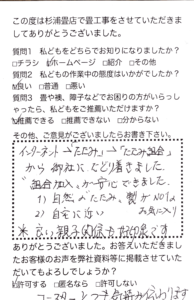 この度は杉浦畳店で畳工事をさせていただきま
してありがとうございました。
質問1 私どもをどちらでお知りになりましたか？
□チラシ ☑ホームページ □紹介 □その他
質問2 私どもの作業中の態度はいかがでしたか？
☑良い □普通 □悪い
質問3 畳や襖、障子などでお困りの方がいらっし
ゃったら、私どもをご推薦いただけますか？
☑推薦できる □推薦できない □分からない
その他、ご意見がございましたらお書き下さい。
インターネット→「たたみ」→「たたみ組合」
から御社にたどり着きました
組合加入、が一安心できました。
1) 自然 たたみ、製がNO1
2) 自宅に近い お気に入り
ありがとうございました。お答えいただきまし
たお客様のお声を弊社資料等に掲載させていた
だいてもよろしでしょうか？
☑許可する □匿名なら □許可しない